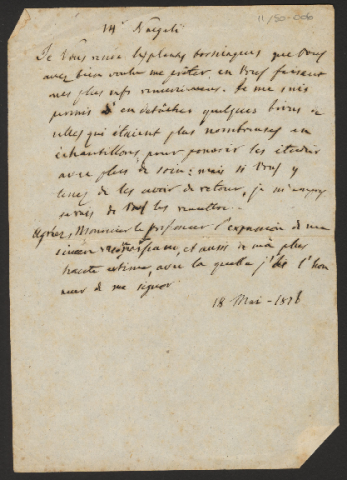 11/50-006
Mr Naegeli
Je vous renvoie les plantes que vous
avez bien voulu me prêter, en vous faisant
mes plus vifs remerciemens. Je me suis
permis d'en détacher quelques brins à
celles qui étaient plus nombreuses en
échantillons pour pouvoir les étudier
avec plus de soin: mais si vous y
tenez de les avoir de retour, je
de vous les remettre.
Agréez, Monsieur le professeur l'expression de ma
sincère et aussi de ma plus
haute estime, avec la quelle j'ai l'hon
neur de me signer
18 Mai - 18